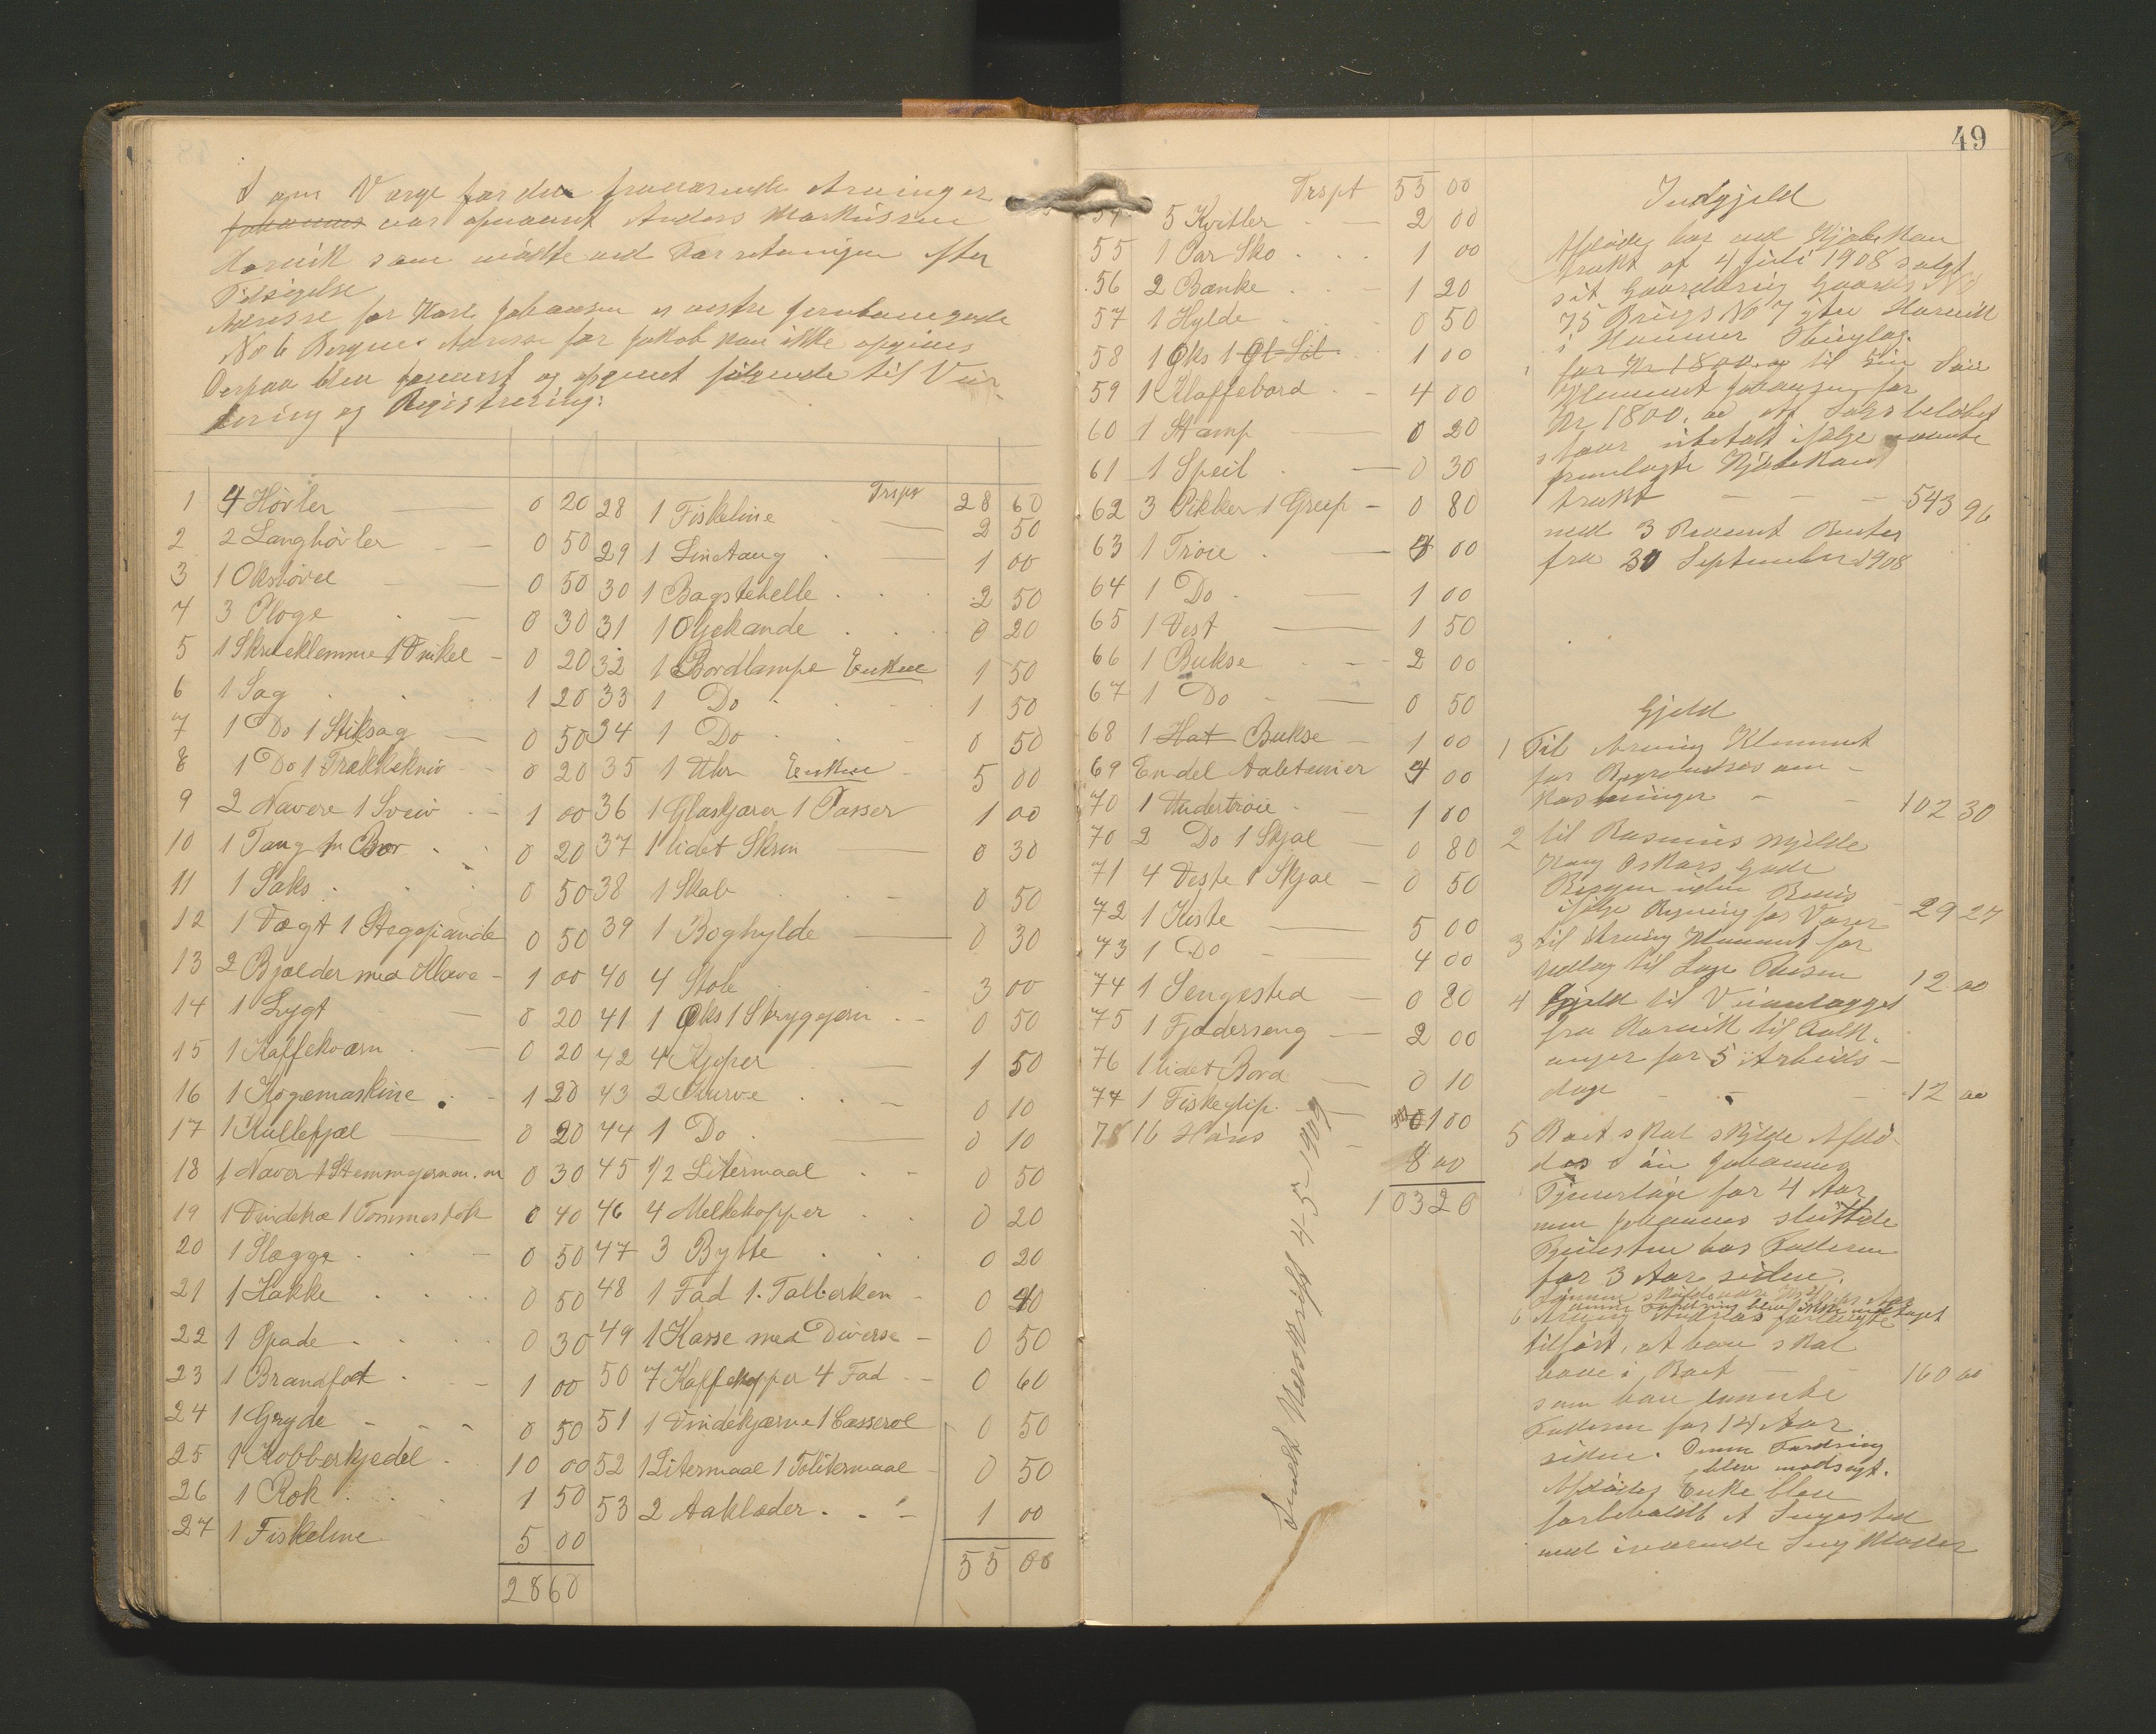 Som Værge for den fraværende Arving er
Johannes var opnævnt Anders Markussen
Harvik som mødte ved Forretningen efter
Tilsigelse
Adresse for Karl Johansen er vestre Jernbanegade
No 6 Bergen. Adresse for Jakob kan ikke opgives
Derpaa blev fremvist og opgivet følgende til Vur-
dering og Registrering:
1 4 Høvler 0 20
2 2 Langhøvler 0 50
3 1 Okshøvel 0 50
4 3 Ploge 0 30
5 1 Skrueklemme 1 Vinkel 0 20
6 1 Sag 1 20
7 1 Do 1 Stiksag 0 50
8 1 Do 1 Trækkekniv 0 20
9 2 Navere 1 Sveiv 1 00
10 1 Tang m Bor 0 20
11 1 Saks 0 50
12 1 Vægt 1 Stegepande 0 50
13 2 Bjælder med Klave 1 00
14 1 Lygt 0 20
15 1 Kaffekværn 0 20
16 1 Kogemaskine 1 20
17 1 Rullefjæl 0 20
18 1 Naver 1 Stemmejern m. m 0 30
19 1 Vindetræ 1 Tommestok 0 40
20 1 Slægge 0 50
21 1 Hakke 0 50
22 1 Spade 0 30
23 1 Brandfod 1 00
24 1 Gryde 0 50
25 1 Kobberkjedel 10 00
26 1 Rok 1 50
27 1 Fiskeline 5 00
28 60
Trspt 28 60
28 1 Fiskeline 2 50
29 1 Linetaug 1 00
30 1 Bagstehelle 2 50
31 1 Oljekande 0 20
32 1 Bordlampe Enken 1 50
33 1 Do 1 50
34 1 Do 0 50
35 1 Uhr Enken 5 00
36 1 Glaskjærer 1 Passer 1 00
37 1 lidet Skrin 0 30
38 1 Skab 0 50
39 1 Boghylde 0 30
40 4 Stole 3 00
41 1 Øks 1 Strygejern 0 50
42 4 Kopper 1 50
43 2 Kurve 0 10
44 1 Do 0 10
45 1/2 Litermaal 0 50
46 4 Melkekopper 0 20
47 3 Bytte 0 20
48 1 Fad 1 Tallerken 0 40
49 1 Kasse med Diverse 0 50
50 7 Kaffekopper 4 Fad 0 60
51 1 Vindekjærne 1 Casserol 0 50
52 1 Litermaal 1 Tolitermaal 0 50
53 2 Aaklæder 1 00
55 00
49
Trspt 55 00
54 5 Kvitler 2 00
55 1 Par Sko 1 00
56 2 Bænke 1 20
57 1 Hylde 0 50
58 1 Øks 1 Øl-Söl 1 00
59 1 Klaffebord 4 00
60 1 Stamp 0 20
61 1 Speil 0 30
62 3 Pikker 1 Greep 0 80
63 1 Trøie 4 00
64 1 Do 1 00
65 1 Vest 1 50
66 1 Bukse 2 00
67 1 Do 0 50
68 1 Hat Bukse 1 00
69 En del Aaleteiner 4 00
70 1 Undertrøie 1 00
70 2 Do 1 Skjol 0 80
71 4 Veste 1 Skjol 0 50
72 1 Kiste 5 00
73 1 Do 4 00
74 1 Sengested 0 80
75 1 Fjæderseng 2 00
76 1 lidet Bord 0 10
77 1 Fiskeglip 1 00
78 16 Høns 8 00
103 20
Sendt Udskrift 4-5-1909
Indgjeld
Afdøde har ved Kjøbekon
trakt af 4 Juli 1908 solgt
sit Gaardbrug Gaards No
75 Brugs No 7 ytre Harvik
i Hammer Thinglag
for Kr 1800.00 til sin Søn
Klemmet Johansen for
Kr. 1800.00 Af Salgsbeløbet
staar ubetalt ifølge
fremlagte Kjøbekon
trakt 543 96
med 3 Procent Renter
fra 30 September 1908
Gjeld
1 Til Arving Klemmet
for Begravelsesom-
kostninger 102 30
2 til Rasmus Mjelde
Kong Oskars Gade
Bergen
ifølge Regning for Varer 29 27
3 til Arving Klemmet for
Udlæg til Læge 12 00
4 Gjeld til Veianlægget
fra Harvik til
for 5 Arbeids-
dage 12 00
5 Boet skal skylde Afdø-
des Søn Johannes
Tjenerløn for 4 Aar
men Johannes sluttede
Tjenesten hos Faderen
for 3 Aar siden.
6 Arving Andreas forlangte
tilført, at han skal
have i Boet 160 00
som han laante
Faderen for 14 Aar
siden. Denne Fordring
blev modsagt.
Afdødes Enke blev
forbeholdt et Sengested
med iværende Seng Klæder